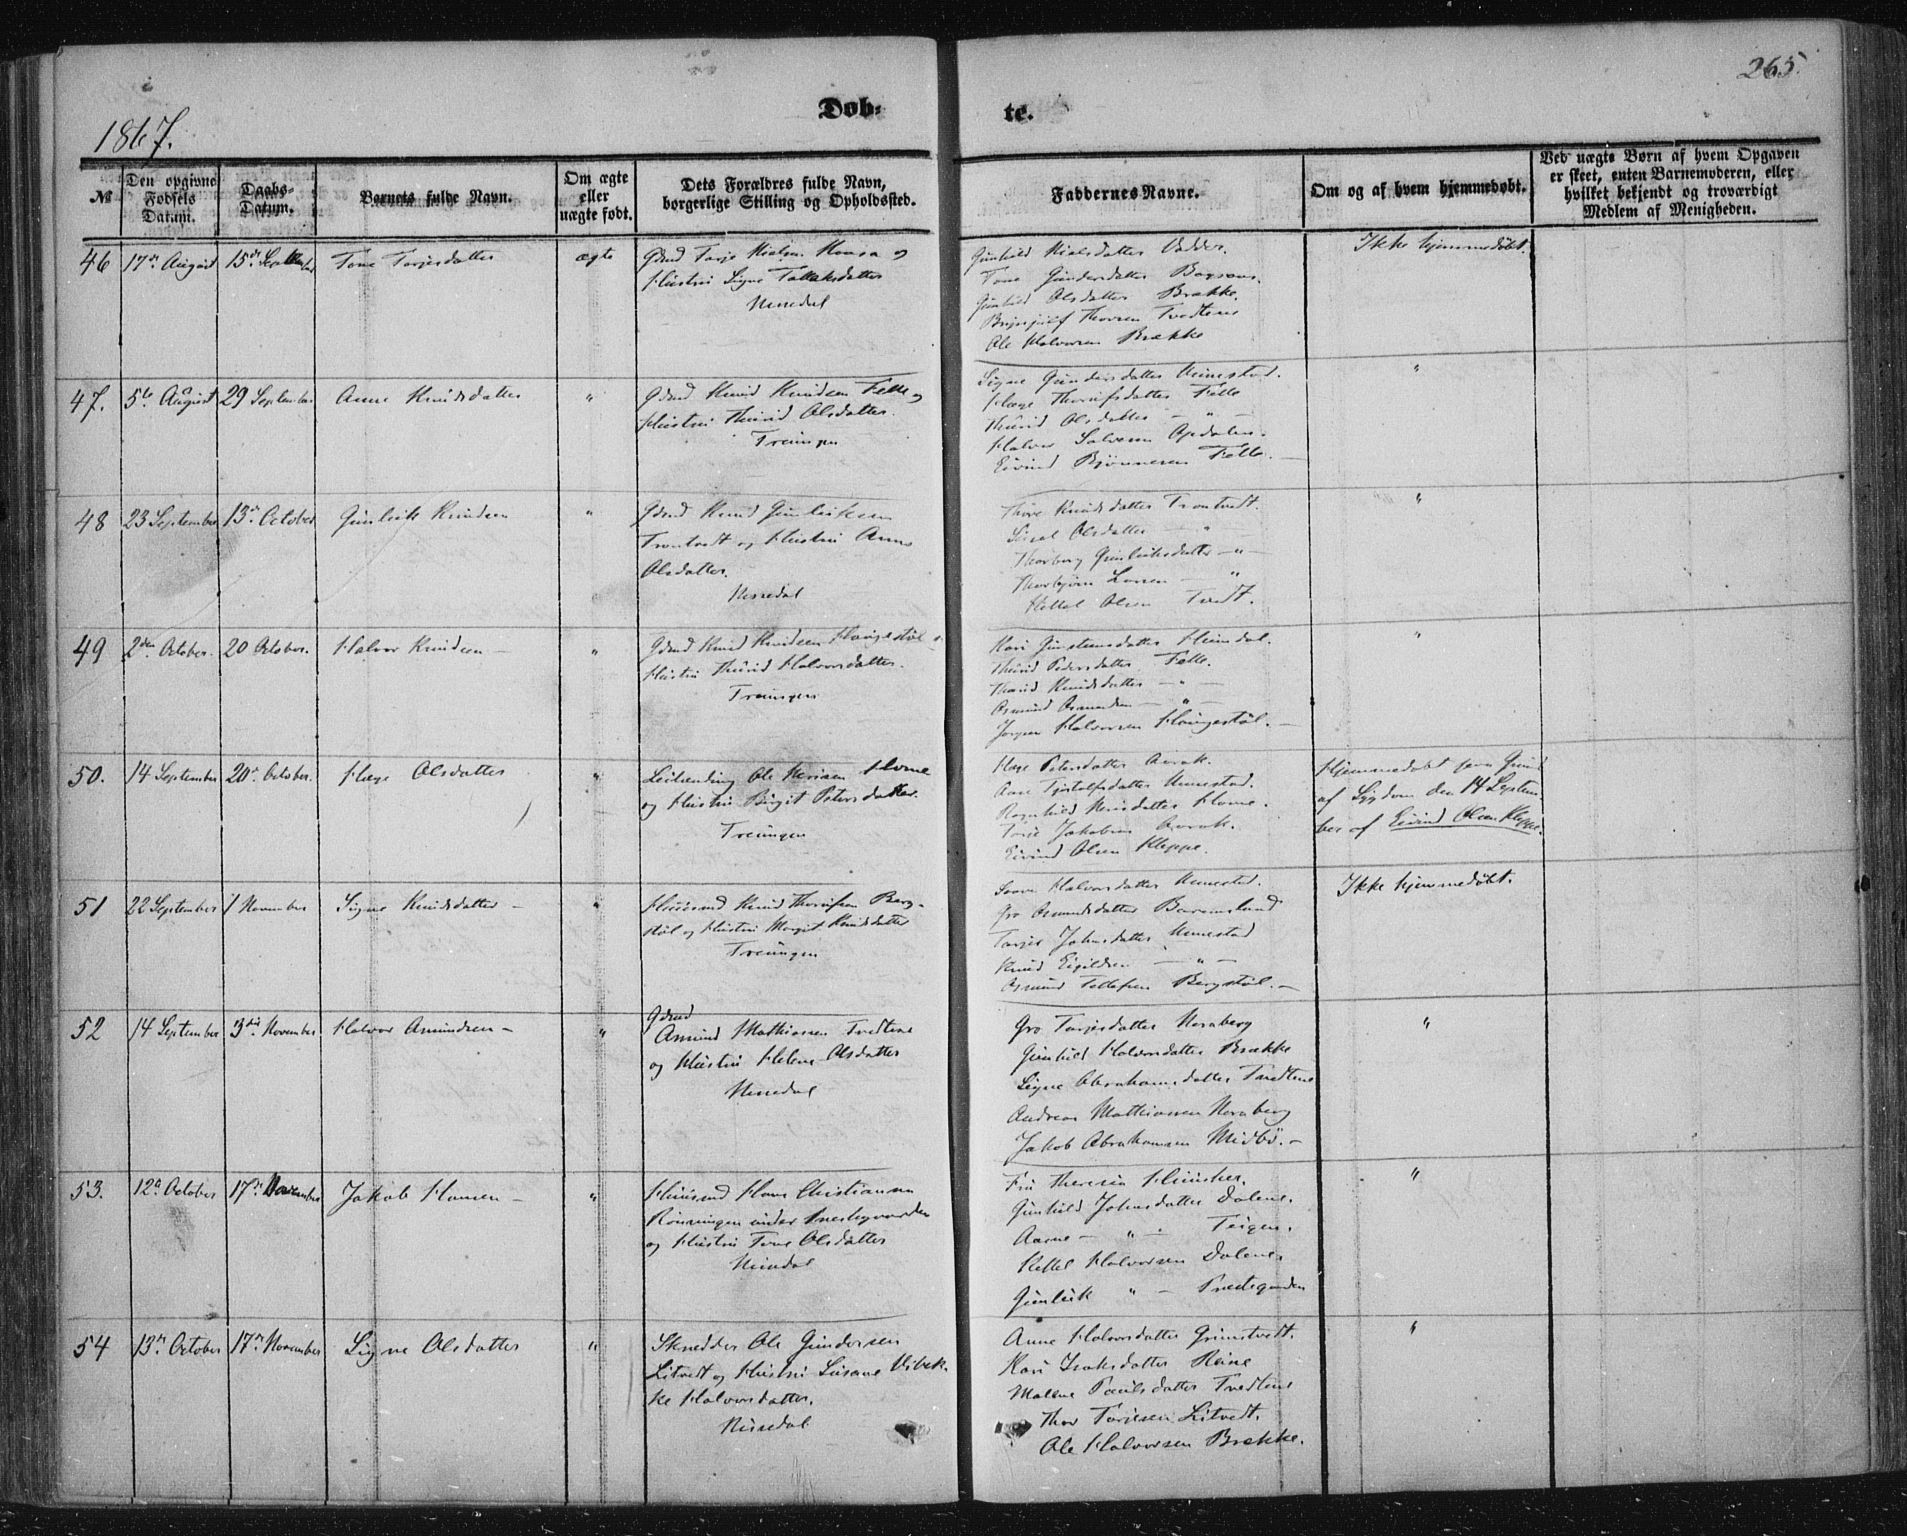 265.
Døb-
te.
1867.
№
Den opgivne Fødsels Datum.
Daabs-Datum.
Barnets fulde Navn.
Om ægte eller uægte født.
Dets Forældres fulde Navn, borgerlige Stilling og Opholdssted.
Faddernes Navne.
Om og af hvem hjemmedøbt.
Ved uægte Børn af hvem Opgaven er skeet, enten Barnemoderen, eller hvilket bekjendt og troværdigt Medlem af Menigheden.
46 17de August 15de September Tone Torjesdatter ægte
Gdmd Torje Nielsen og
Hustru Signe Tallaksdatter
Nissedal
Gunhild Nielsdatter
Tone Gundersdatter
Gunhild Olsdatter Brække.
Brynjulf Thorsen Tvedtene
Ole Halvorsen Brække
Ikke hjemmedøbt.
47. 5te August 29 September Anne Knudsdatter "
Gdmd Knud Knudsen Felle og
Hustru Thurid Olsdatter.
Treungen
Signe Gundersdatter Nænestad.
Hæge Thorufsdatter Felle
Thurid Olsdatter — " —
Halvor Salvesen Opdalen.
Eivind Bjønnesen Felle. —
"
48 23 September 13de October Gunleik Knudsen "
Gdmd Knud Gunleiksen
Trontvedt og Hustru Anne
Olsdatter.
Nissedal
Thore Knudsdatter Trontvedt.
Sissel Olsdatter — "
Thorberg Gunleiksdatter — " —
Thorbjørn Larsen — "
Kettel Olsen Tvedt.
"
49 2den October. 20 October. Halvor Knudsen — "
Gdmd Knud Knudsen Haugestøl
Hustru Thurid Halvorsdatter.
Treungen
Kari Gunsteinsdatter Heimdal.
Thurid Pedersdatter Felle.
Thurid Knudsdatter — " —
Osmund Osmundsen — " —
Jørgen Halvorsen Haugestøl. —
"
50. 14 September 20de October. Hæge Olsdatter "
Leilending Ole Nerisen Horne
og Hustru Birgit Petersdatter.
Treungen
Hæge Petersdatter Aarak.
Aase Tjostolfsdatter Nænestad.
Ragnhild Nerisdatter Horne.
Torje Jakobsen Aarak.
Eivind Olsen Kleppe.
Hjemmedøbt paa Grund
af Sygdom den 14 Septem
ber af Eivind Olsen Kleppe.
51 22 September 1 November Signe Knudsdatter — "
Huusmd Knud Thorufsen Berg-
støl og Hustru Margit Knudsdatter
Treungen
Halvorsdatter Nænestad.
Gro Osmundsdatter
Torjer Johnsdatter Nænestad
Knud Eigildsen — " —
Osmund Tellefsen Bergstøl. —
Ikke hjemmedøbt.
52 14 September 3die November Halvor Amundsen — "
Gdmd
Amund Mathiassen Tvedtene
og Hustru Helene Olsdatter
Nissedal
Gro Torjesdatter Noraberg
Gunhild Halvorsdatter Brække
Signe Abrahamsdatter Tvedtene
Andreas Mathiassen Noraberg
Jakob Abrahamsen Midbø. —
"
53. 12te October 17de November Jakob Hansen — "
Huusmd Hans Christiansen
Rønningen under Præstegaarden
og Hustru Tone Olsdatter
Nissedal
Fru Theresia
Gunhild Johnsdatter Dalene.
Aasne — " — Teigen.
Kettel Halvorsen Dalene
Gunleik " — Præstegaarden
"
54 13de October 17de November Signe Olsdatter "
Skrædder Ole Gundersen
Litvedt og Hustru Susane Vibek-
ke Halvorsdatter.
Nissedal
Anne Halvorsdatter Grimstvedt.
Kari Isaksdatter Reine
Malene Paulsdatter Tvedtene
Thor Torjesen Litvedt.
Ole Halvorsen Brække.
"